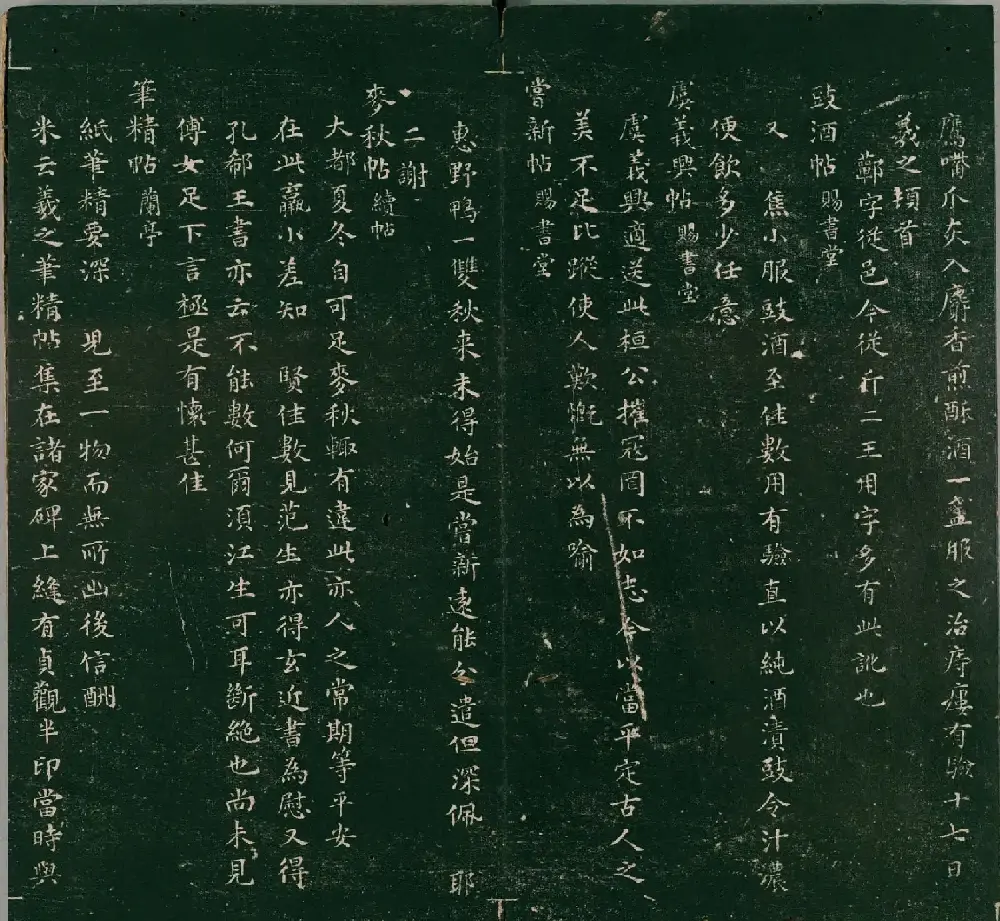 鷹嘴爪灰入麝香煎酥酒一盞服之治痔瘻有驗十七日
羲之頓首
鄿字從邑今從斤二王用字多有此訛也
豉酒帖 賜書堂
又 焦小服豉酒至佳數用有驗直以純酒漬豉令汁濃
便飲多少任意
虞義興帖 賜書堂
虞義興適送此桓公摧寇罔不如志今以當平定古人之
美不足比蹤使人歎慨無以為喻
嘗新帖 賜書堂
惠野鴨一雙秋來未得始是嘗新遠能分遣但深佩 耶
二謝
麥秋帖 續帖
大都夏冬自可足麥秋輙有違此亦人之常期等平安
在此羸小差知 賢佳數見范生亦得玄近書為慰又得
孔郗王書亦云不能數何爾須江生可耳斷絶也尚未見
傅女足下言極是有懷甚佳
筆精帖 蘭亭
紙筆精要深 見至一物而無所出後信酬
米云羲之筆精帖集在諸家碑上縫有貞觀半印當時與